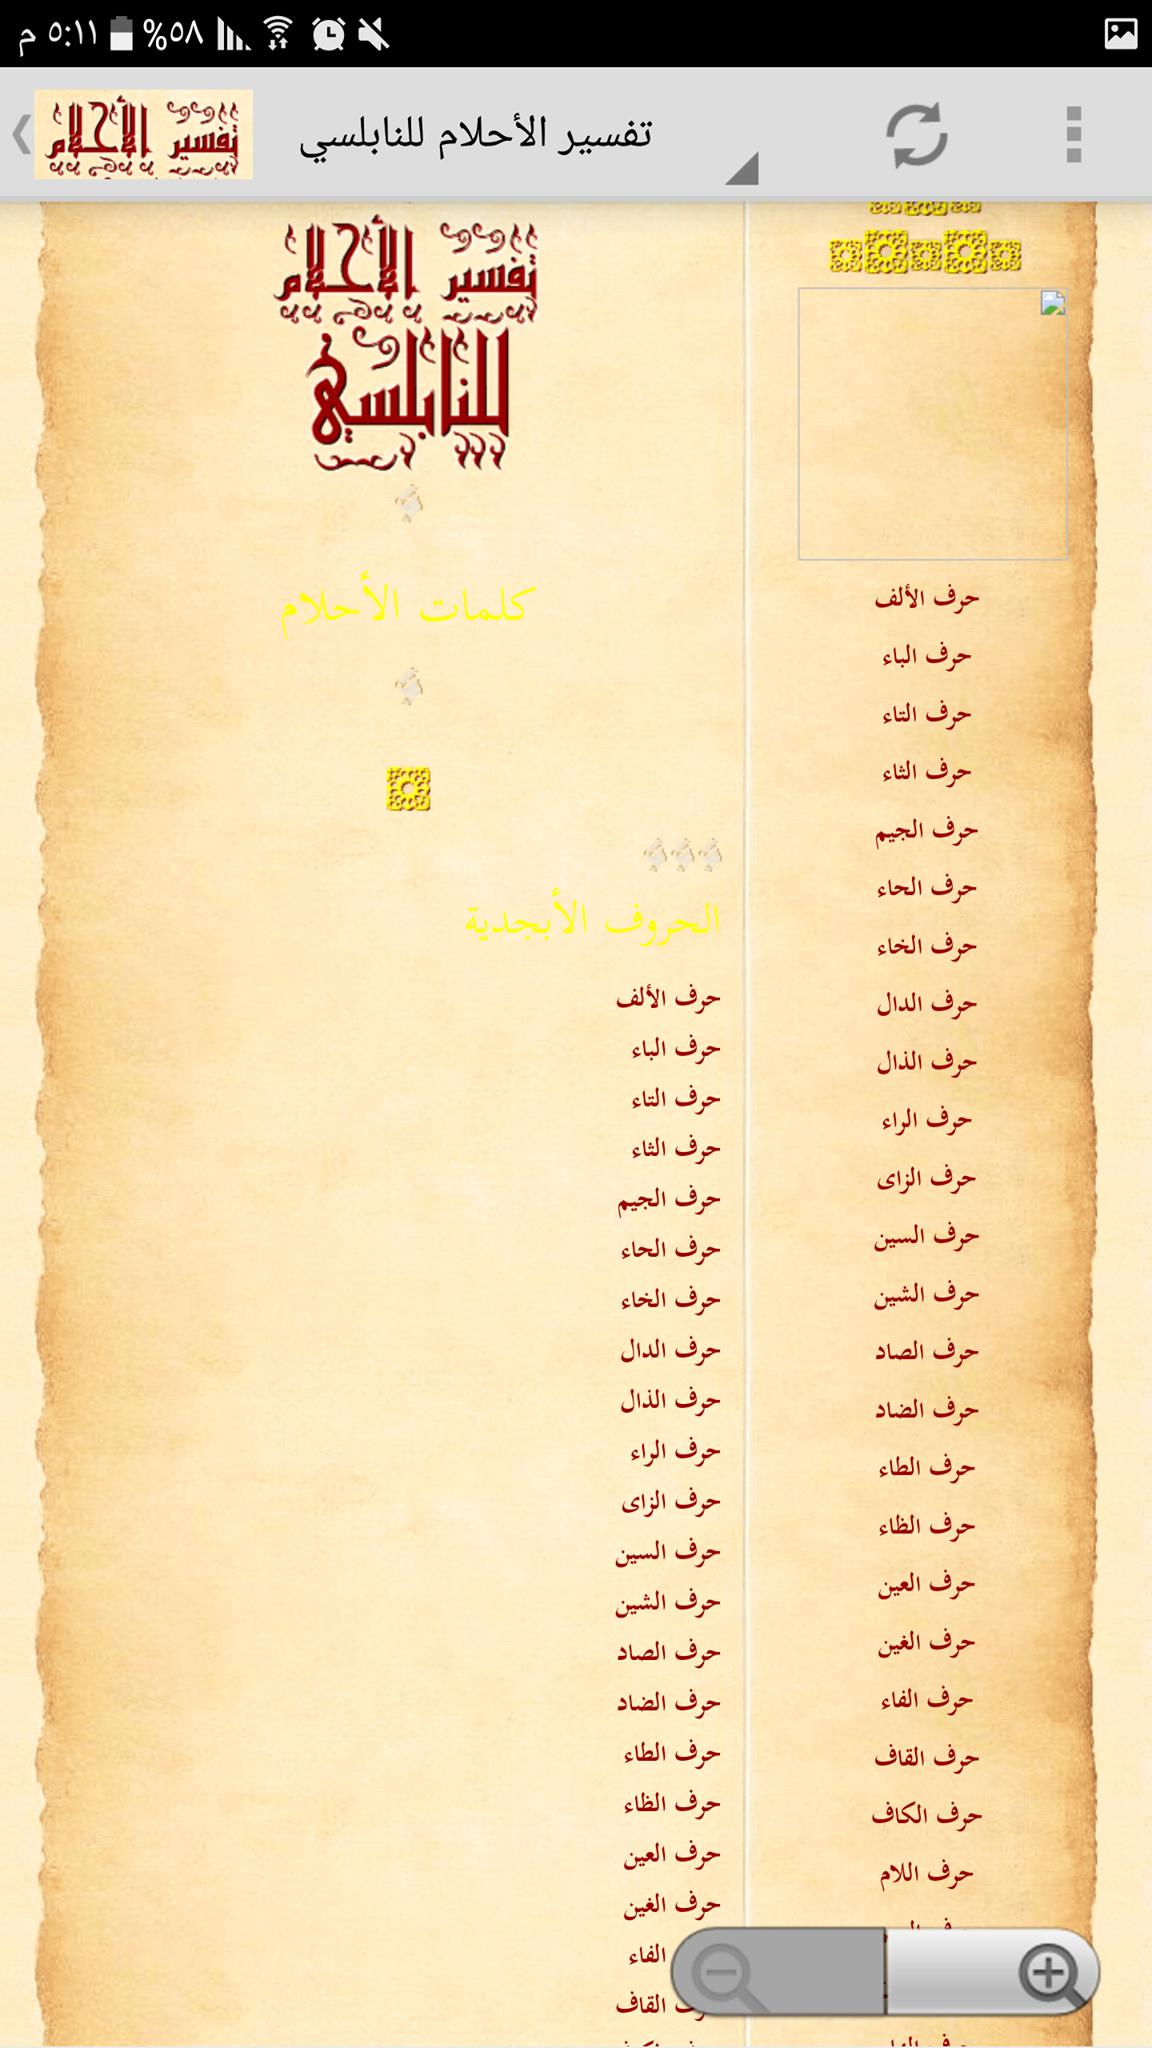 م ٥:١١ %٥٨
تفسير الأحلام
تفسير الأحلام للنابلسي
حرف الألف
حرف الباء
حرف التاء
حرف الثاء
حرف الجيم
حرف الحاء
حرف الخاء
حرف الدال
حرف الذال
حرف الراء
حرف الزاى
حرف السين
حرف الشين
حرف الصاد
حرف الضاد
حرف الطاء
حرف الظاء
حرف العين
حرف الغين
حرف الفاء
حرف القاف
حرف الكاف
حرف اللام
تفسير الأحلام
للنابلسي
كلمات الأحلام
الحروف الأبجدية
حرف الألف
حرف الباء
حرف التاء
حرف الثاء
حرف الجيم
حرف الحاء
حرف الخاء
حرف الدال
حرف الذال
حرف الراء
حرف الزاى
حرف السين
حرف الشين
حرف الصاد
حرف الضاد
حرف الطاء
حرف الظاء
حرف العين
حرف الغين
الفاء
القاف